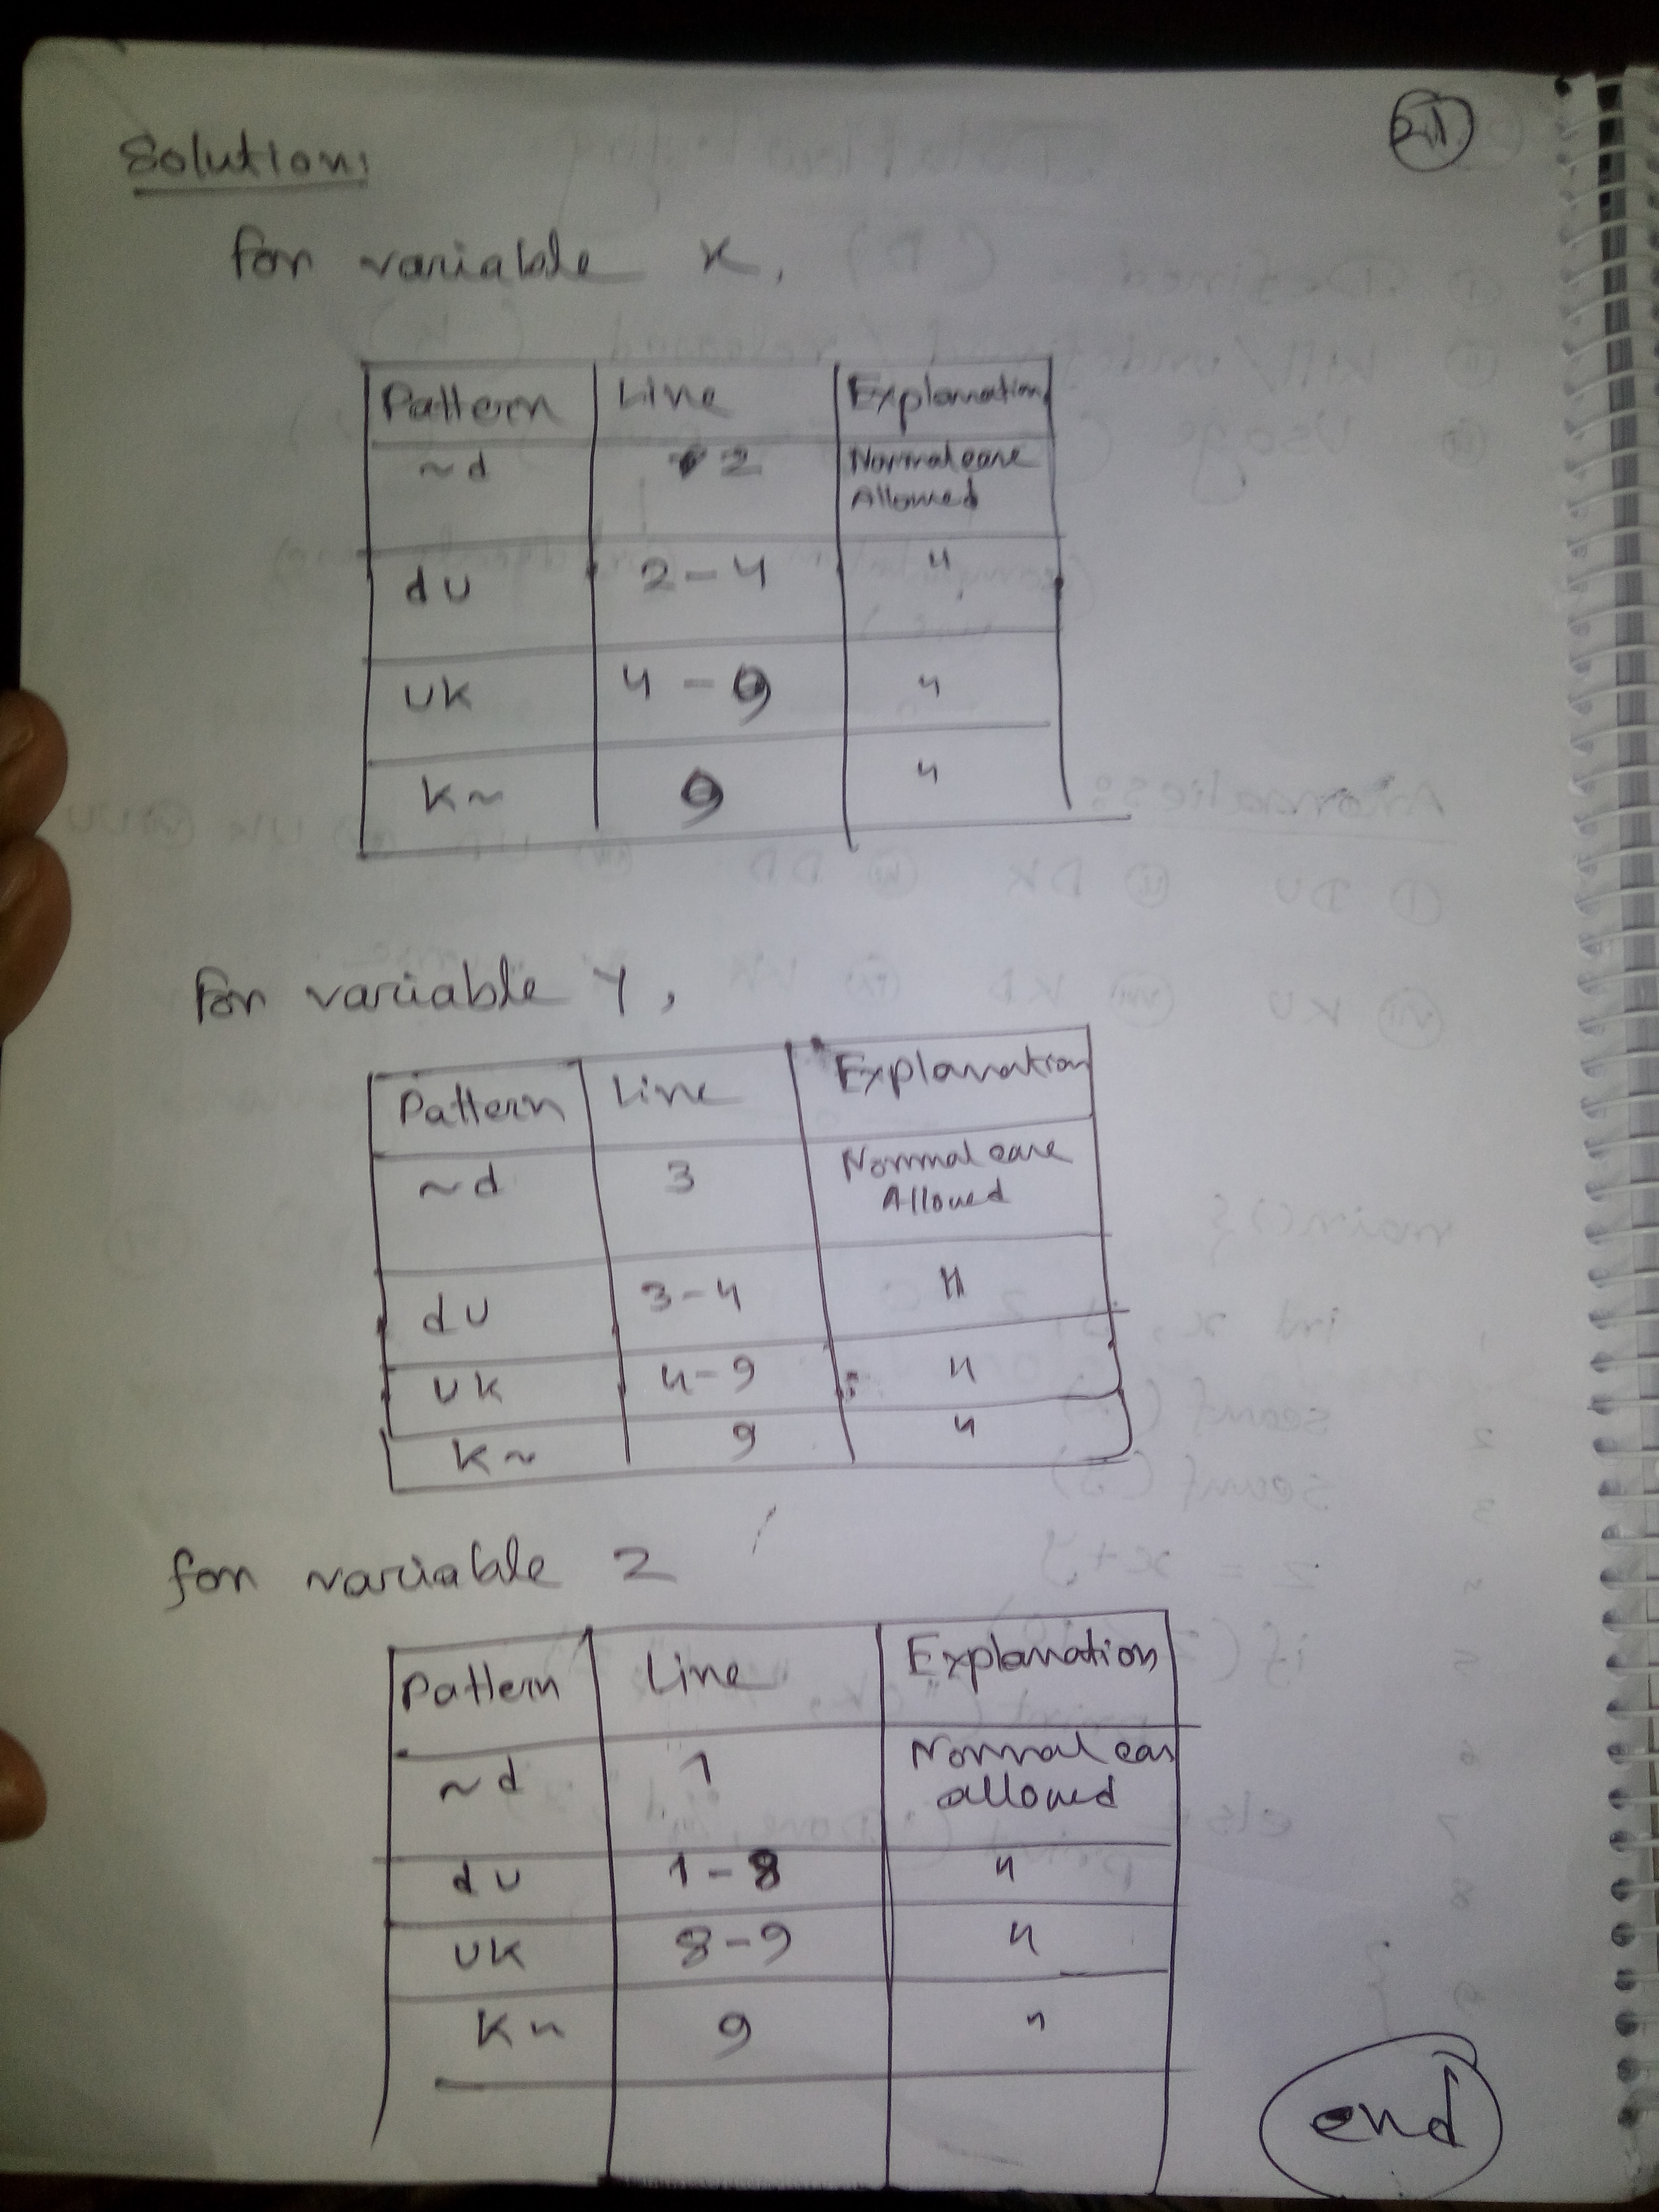 21
Solution:
For variable x,
Pattern Line Explanation
~d 2 Normal case
Allowed
du 2-4 "
uk 4-9 "
k~ 9 "
For variable Y,
Pattern Line Explanation
~d 3 Normal case
Allowed
du 3-4 "
uk 4-9 "
k~ 9 "
for variable Z
Pattern Line Explanation
~d 1 Normal cas
allowed
du 1-8 "
uk 8-9 "
k~ 9 "
end